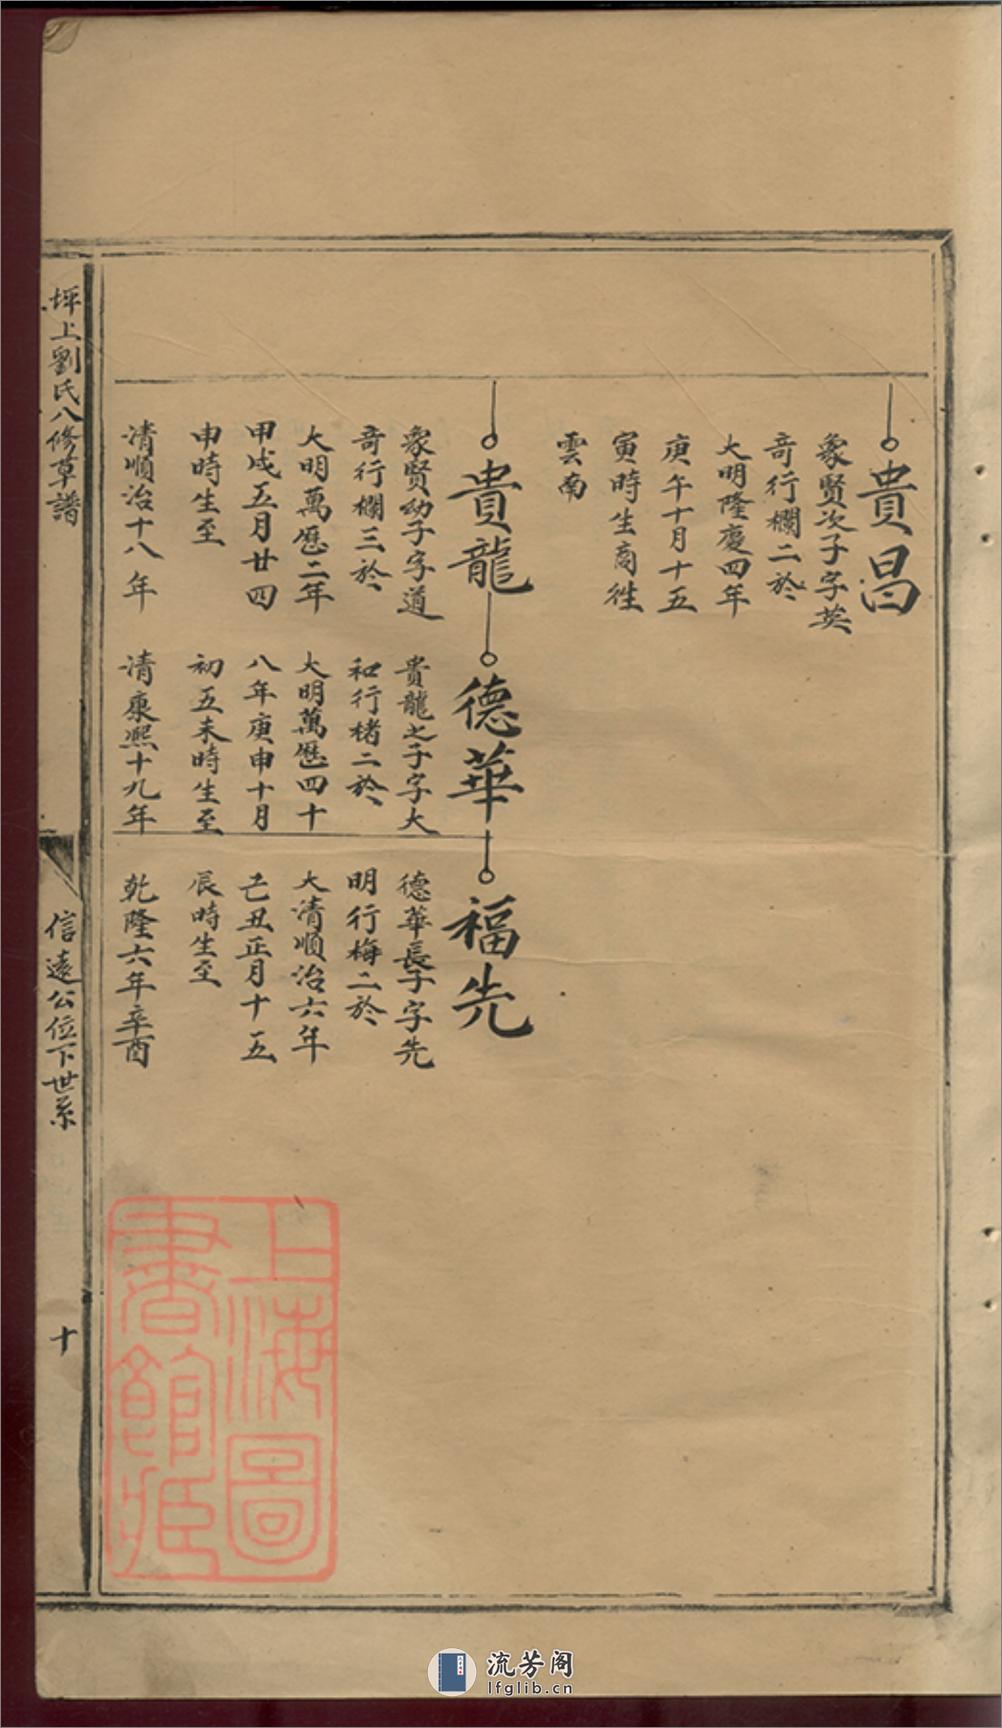 貴昌
象賢次子字英
奇行欄二於
大明隆慶四年
庚午十月十五
寅時生商徃
雲南
貴龍
象賢幼子字道
奇行欄三於
大明萬歷二年
甲戍五月廿四
申時生至
清順治十八年
德華
貴龍之子字大
和行楮二於
大明萬歷四十
八年庚申十月
初五未時生至
清康熙十九年
福先
德華長子字先
明行梅二於
大清順治六年
己丑正月十五
辰時生至
乾隆六年辛酉
坪上劉氏八修草譜
信遠公位下世系
十
上海圖
書館藏
流芳阁
lfglib.cn